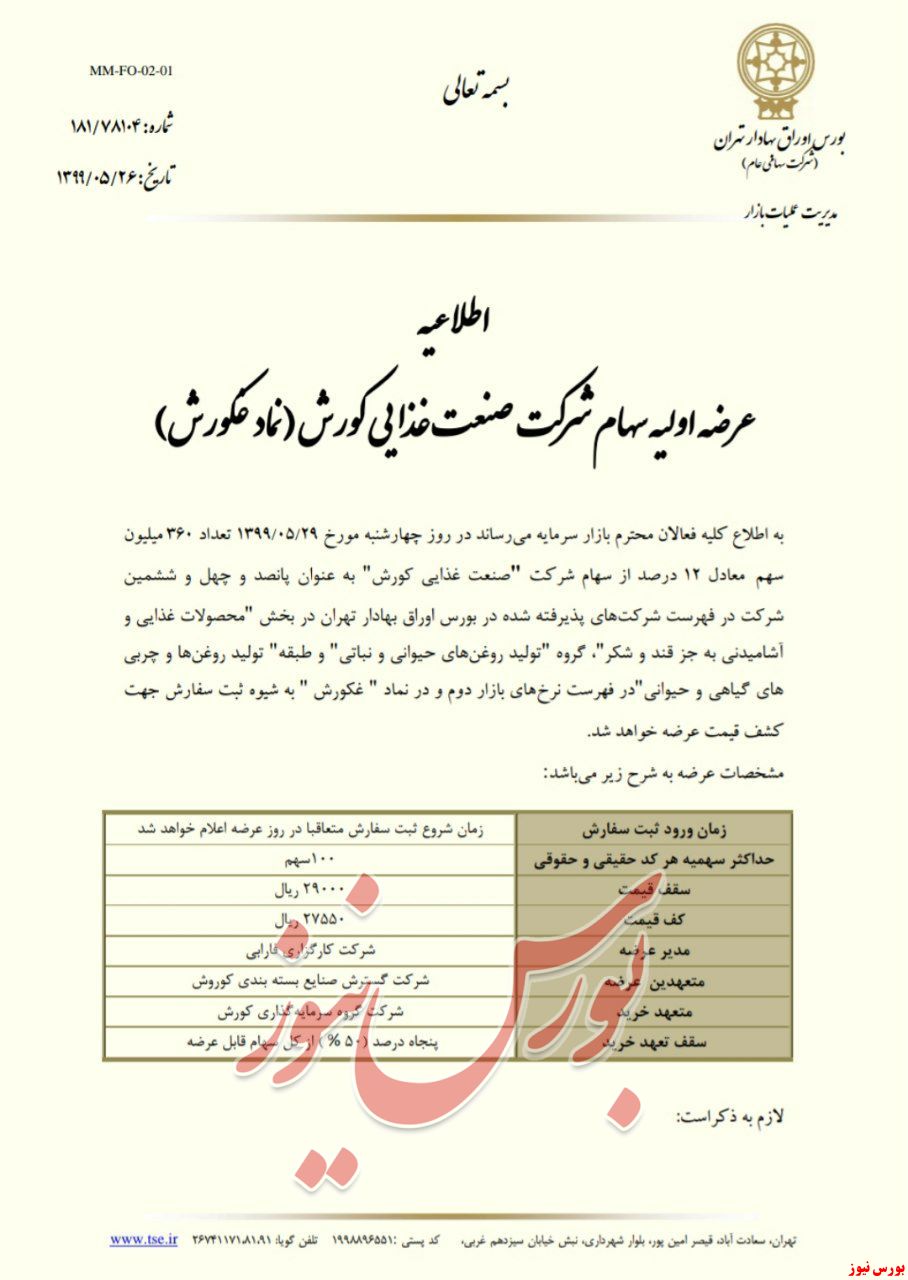 MM-FO-02-01
شماره: ۱۸۱/۷۸۱۰۴
تاریخ: ۱۳۹۹/۰۵/۲۶
بسمه تعالی
بورس اوراق بهادار تهران
(شرکت سهامی عام)
مدیریت عملیات بازار
اطلاعیه
عرضه اولیه سهام شرکت صنعت غذایی کورش (نماد غکورش)
به اطلاع کلیه فعالان محترم بازار سرمایه می‌رساند در روز چهارشنبه مورخ ۱۳۹۹/۰۵/۲۹ تعداد ۳۶۰ میلیون
سهم معادل ۱۲ درصد از سهام شرکت "صنعت غذایی کورش" به عنوان پانصد و چهل و ششمین
شرکت در فهرست شرکت‌های پذیرفته شده در بورس اوراق بهادار تهران در بخش "محصولات غذایی و
آشامیدنی به جز قند و شکر"، گروه "تولید روغن‌های حیوانی و نباتی" و طبقه" تولید روغن‌ها و چربی
های گیاهی و حیوانی"در فهرست نرخ‌های بازار دوم و در نماد " غکورش " به شیوه ثبت سفارش جهت
کشف قیمت عرضه خواهد شد.
مشخصات عرضه به شرح زیر می‌باشد:
زمان ورود ثبت سفارش زمان شروع ثبت سفارش متعاقبا در روز عرضه اعلام خواهد شد
حداکثر سهمیه هر کد حقیقی و حقوقی ۱۰۰سهم
سقف قیمت ۲۹۰۰۰ ریال
کف قیمت ۲۷۵۵۰ ریال
مدیر عرضه شرکت کارگزاری فارابی
متعهدین عرضه شرکت گسترش صنایع بسته بندی کوروش
متعهد خرید شرکت گروه سرمایه‌گذاری کورش
سقف تعهد خرید پنجاه درصد (۵۰ %) از کل سهام قابل عرضه
بورس نیوز
لازم به ذکراست:
تهران، سعادت آباد، قیصر امین پور، بلوار شهرداری، نبش خیابان سیزدهم غربی، کد پستی :۱۹۹۸۸۹۶۵۵۱ تلفن گویا: ۲۶۷۴۱۱۷۱،۸۱،۹۱ www.tse.ir
بورس نیوز